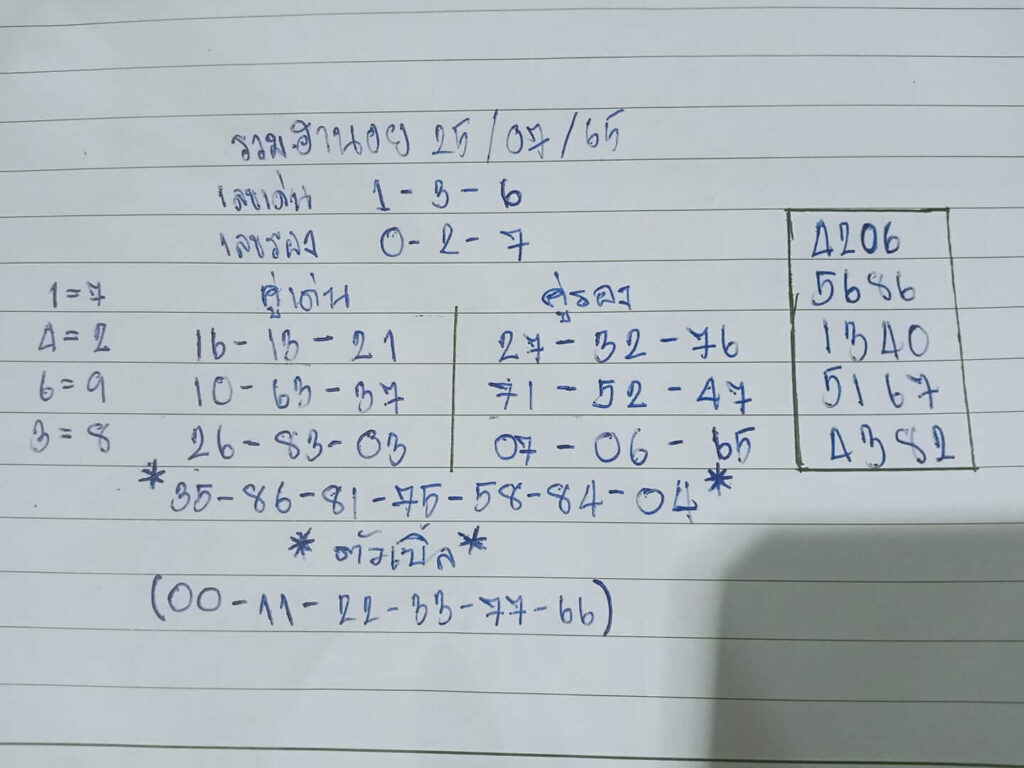 รวมฮานอย 25/07/65
เลขเด่น 1-3-6
เลขรอง 0-2-7
1=7
4=2
6=9
3=8
คู่เด่น
16-13-21
10-63-37
26-83-03
คู่รอง
27-32-76
71-52-47
07-06-65
4206
5686
1340
5167
4382
*35-86-81-75-58-84-04*
*ตัวเบิ้ล*
(00-11-22-33-77-66)